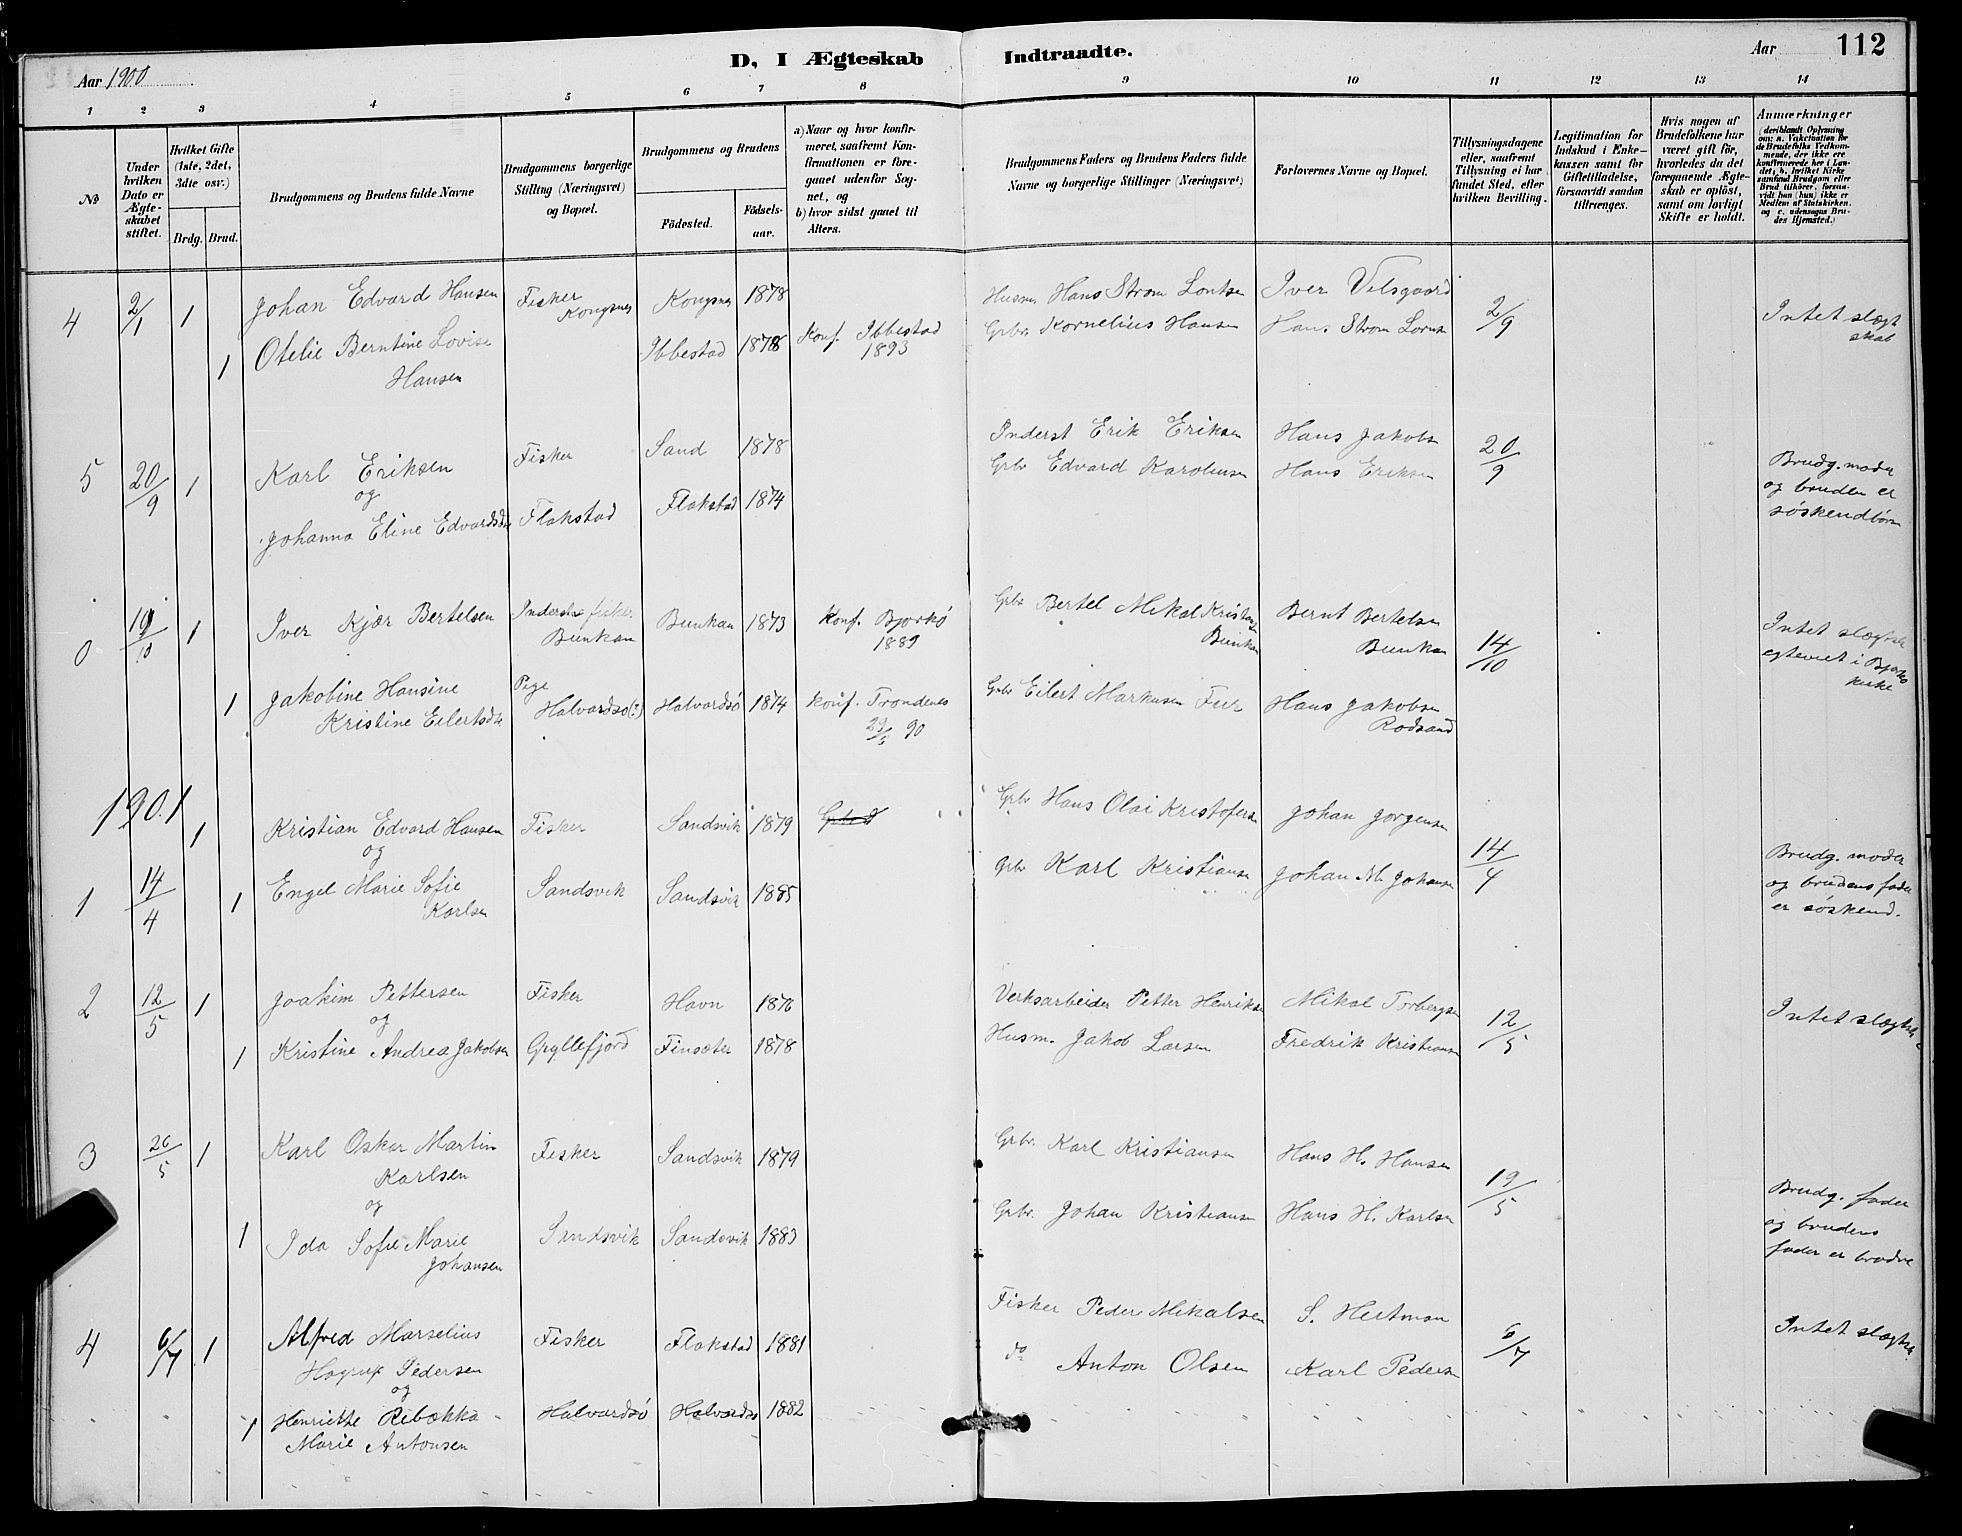 D, I Ægteskab Indtraadte.
Aar 1900
Aar 112
1 2 3 4 5 6 7 8 9 10 11 12 13 14
№
Under hvilken Dato er Ægteskabet stiftet.
Hvilket Gifte (1ste, 2det, 3dte osv.)
Brdg. Brud.
Brudgommens og Brudens fulde Navne
Brudgommens borgerlige Stilling (Næringsvei) og Bopæl.
Brudgommens og Brudens
Födested.
Födselsaar.
a) Naar og hvor konfirmeret, saafremt Konfirmationen er foregaaet udenfor Sognet, og
b) hvor sidst gaaet til Alters.
Brudgommens Faders og Brudens Faders fulde Navne og borgerlige Stillinger (Næringsvei)
Forlovernes Navne og Bopæl.
Tillysningsdagene eller, saafremt Tillysning ei har fundet Sted, efter hvilken Bevilling.
Legitimation for Indskud i Enkekassen samt for Giftetilladelse, forsaavidt saadan tiltrænges.
Hvis nogen af Brudefolkene har været gift för, hvorledes da det foregaaende Ægteskab er oplöst, samt om lovligt Skifte er holdt.
Anmærkninger
(deriblandt Oplysning om: a. Vakcination for de Brudefolks Vedkommende, der ikke ere konfirmerede her i Landet; b. hvilket Kirkesamfund Brudgom eller Brud tilhörer, forsaavidt han (hun) ikke er Medlem af Statskirken, og c. udensogns Brudes Hjemsted.)
4 2/1 1 Johan Edvard Hansen Fisker Kongsnes Kongsnes 1878 Husm Hans Strom Iver 2/9 Intet slægtskab
1 Otelie Berntine Lovise Hansen Ibbestad 1878 Konf. Ibbestad 1893 Grbr Kornelius Hansen Hans Strom
5 20/9 1 Karl Eriksen Fisker Sand 1878 Inderst Erik Eriksen Hans Jakobs 20/9 Brudg. moder og bruden er söskendbörn
og
Johanna Eline Edvardsd. Flakstad Flakstad 1874 Grbr Edvard Hans Eriksen
0 19/10 1 Iver Kjær Bertelsen Inderst fisker Bunkan Bunkan 1873 Konf. Bjorkö 1889 Grbr Bertel Mikal Bunkan Bernt Bertelsen Bunkan 14/10 Intet slægtsk. i Bjarkö kirke
1 Jakobine Hansine Kristine Eilertsdt. Pige Halvardsö(?) Halvardsö 1874 Konf. Trondenes 90 Grbr Eilert Markusen Hans Jakobsen Rodsand
1901
1 14/4 1 Kristian Edvard Hansen Fisker Sandsvik 1879 Grbr Hans Olai Kristofersen Johan Jorgensen 14/4 Brudg. moder og brudens fader er söskend.
og
1 Engel Marie Sofie Karlsen Sandsvik Sandsvik 1885 Grbr Karl Kristiansen Johan M. Johansen
2 12/5 1 Joakim Pettersen Fisker Havn 1876 Verksarbeider Petter Henriksen Mikal Torbergsen 12/5 Intet slægtsk.
og
1 Kristine Andrea Jakobsen Gryllefjord Finsæter 1878 Husm. Jakob Larsen Fredrik Kristiansen
3 26/5 1 Karl Oskar Martin Karlsen Fisker Sandsvik 1879 Grbr. Karl Kristiansen Hans H. Hansen 19/5 Brudg. fader og brudens fader er brødre
og
1 Ida Sofie Marie Johansen Sandsvik Sandsvik 1883 Grbr. Johan Kristiansen Hans H. Karlsen
4 6/7 1 Alfred Marselius Pedersen Fisker Flakstad 1881 Fisker Peder Mikalsen S. Hertman 6/7 Intet slægtsk.
og
1 Henriette Rebækka Marie Antonsen Halvardsö Halvardsö 1882 do Anton Olsen Karl Pedersen